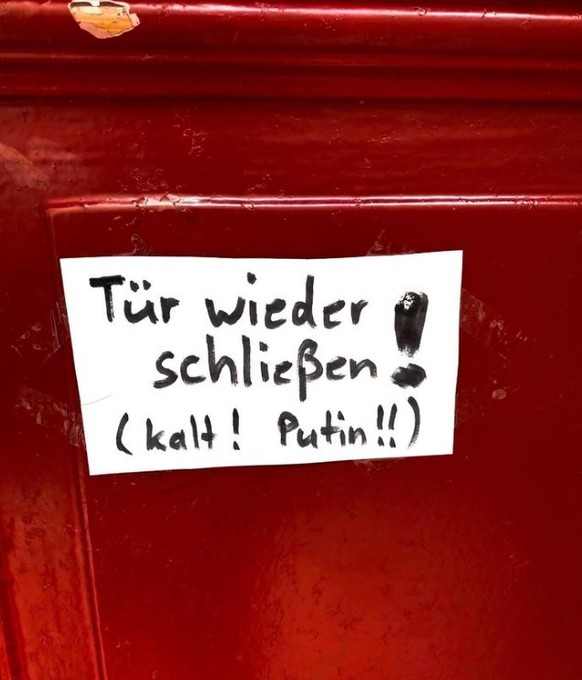 Tür wieder
schließen!
(kalt! Putin!!)